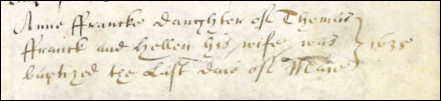 Anne ffrancke daughter of Thomas
ffranck and Hellen his wife was } 1635
baptized the Last daie of Maie